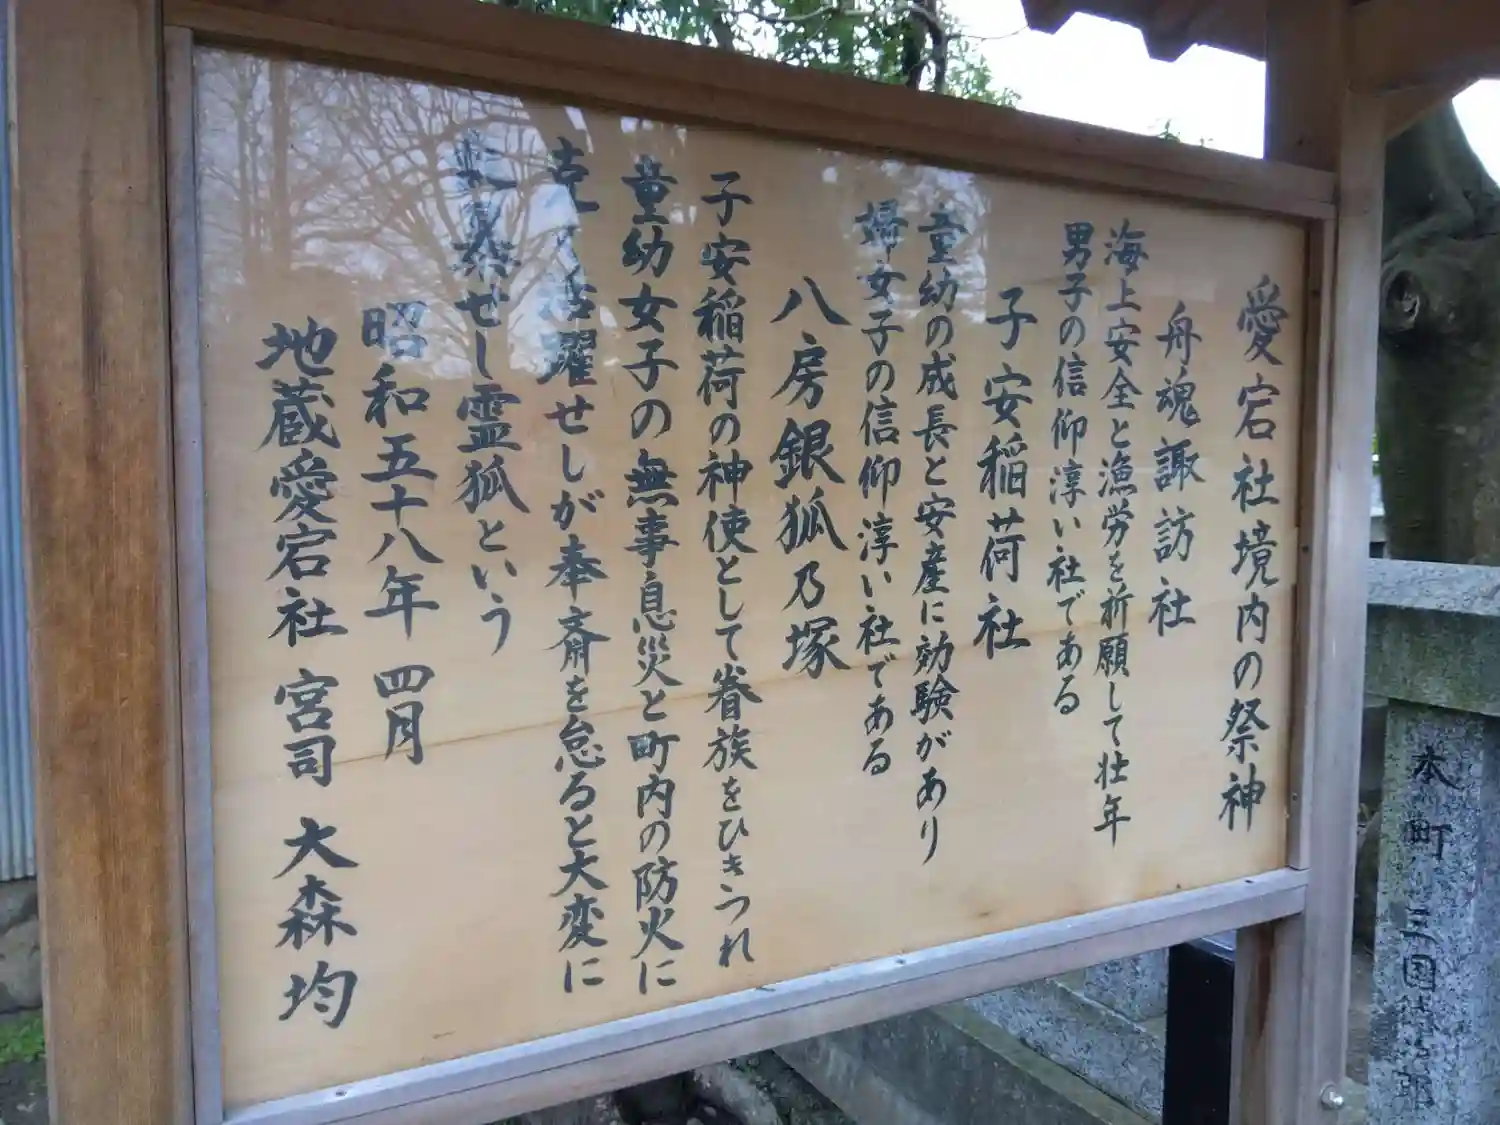 愛宕社境内の祭神
舟魂諏訪社
海上安全と漁労を祈願して壮年
男子の信仰淳い社である
子安稲荷社
童幼の成長と安産に効験があり
婦女子の信仰淳い社である
八房銀狐乃塚
子安稲荷の神使として眷族をひきつれ
童幼女子の無事息災と町内の防火に
克く活躍せしが奉斎を怠ると大変に
せし霊狐という
昭和五十八年 四月
地蔵愛宕社 宮司 大森均
本町 三国